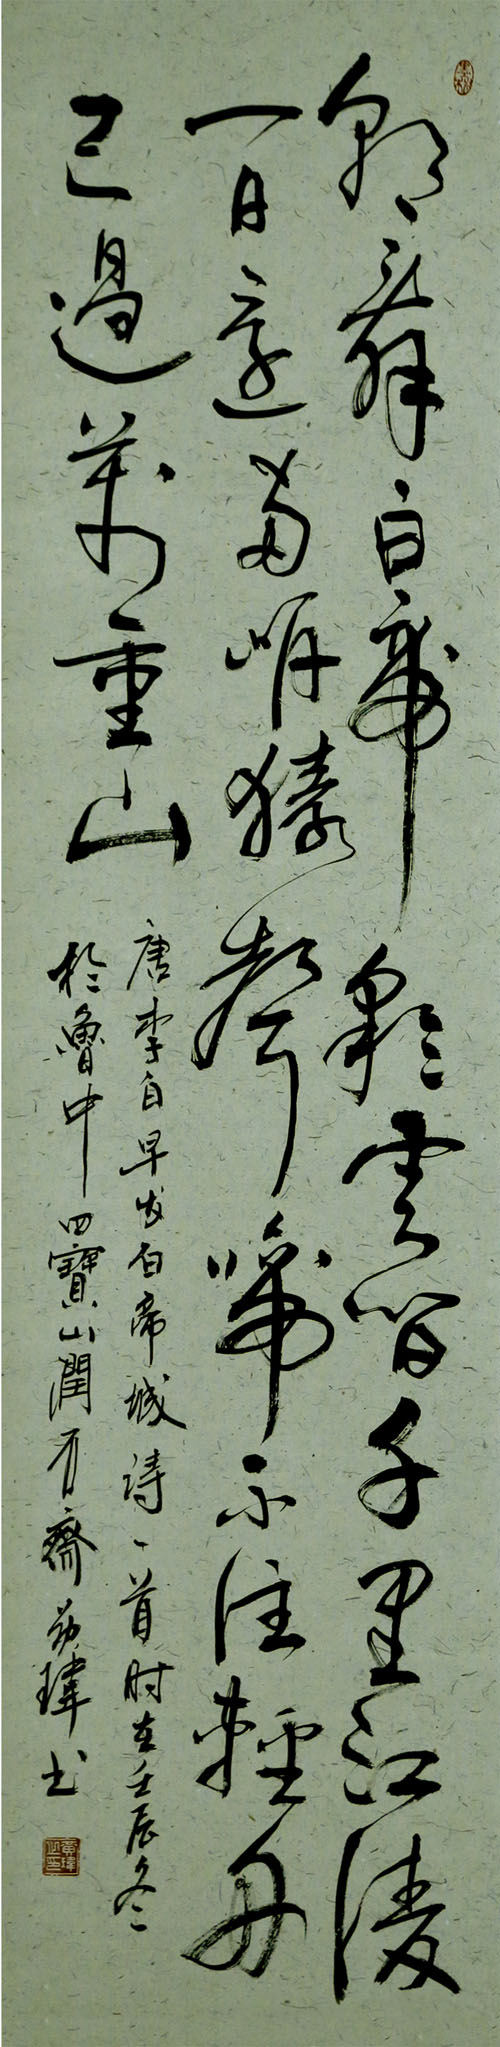 朝辭白帝彩雲間千里江陵
一日還兩岸猿聲啼不住輕舟
已過萬重山
唐李白早发白帝城詩一首时在壬辰冬
於魯中四寶山潤石齋瑋书